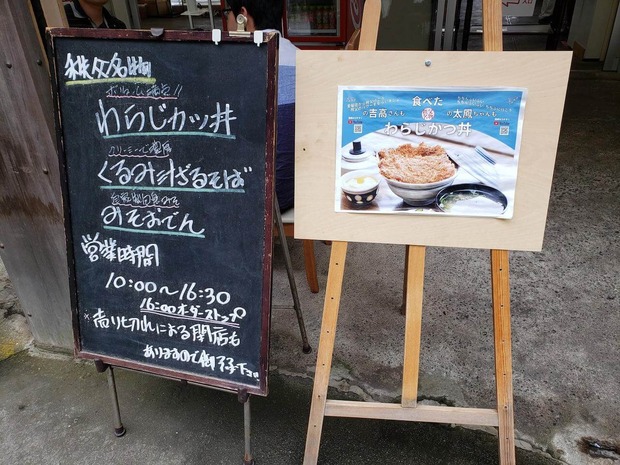 秩父名物
ボリューム満点!!
わらじカツ丼
クリーミーで濃厚
くるみ汁ざるそば
みそおでん
営業時間
10:00〜16:30
16:00オーダーストップ
※売り切れによる閉店も
ありますので御了承下さい
食べた
の吉高さんも
の太鳳ちゃんも
わらじかつ丼